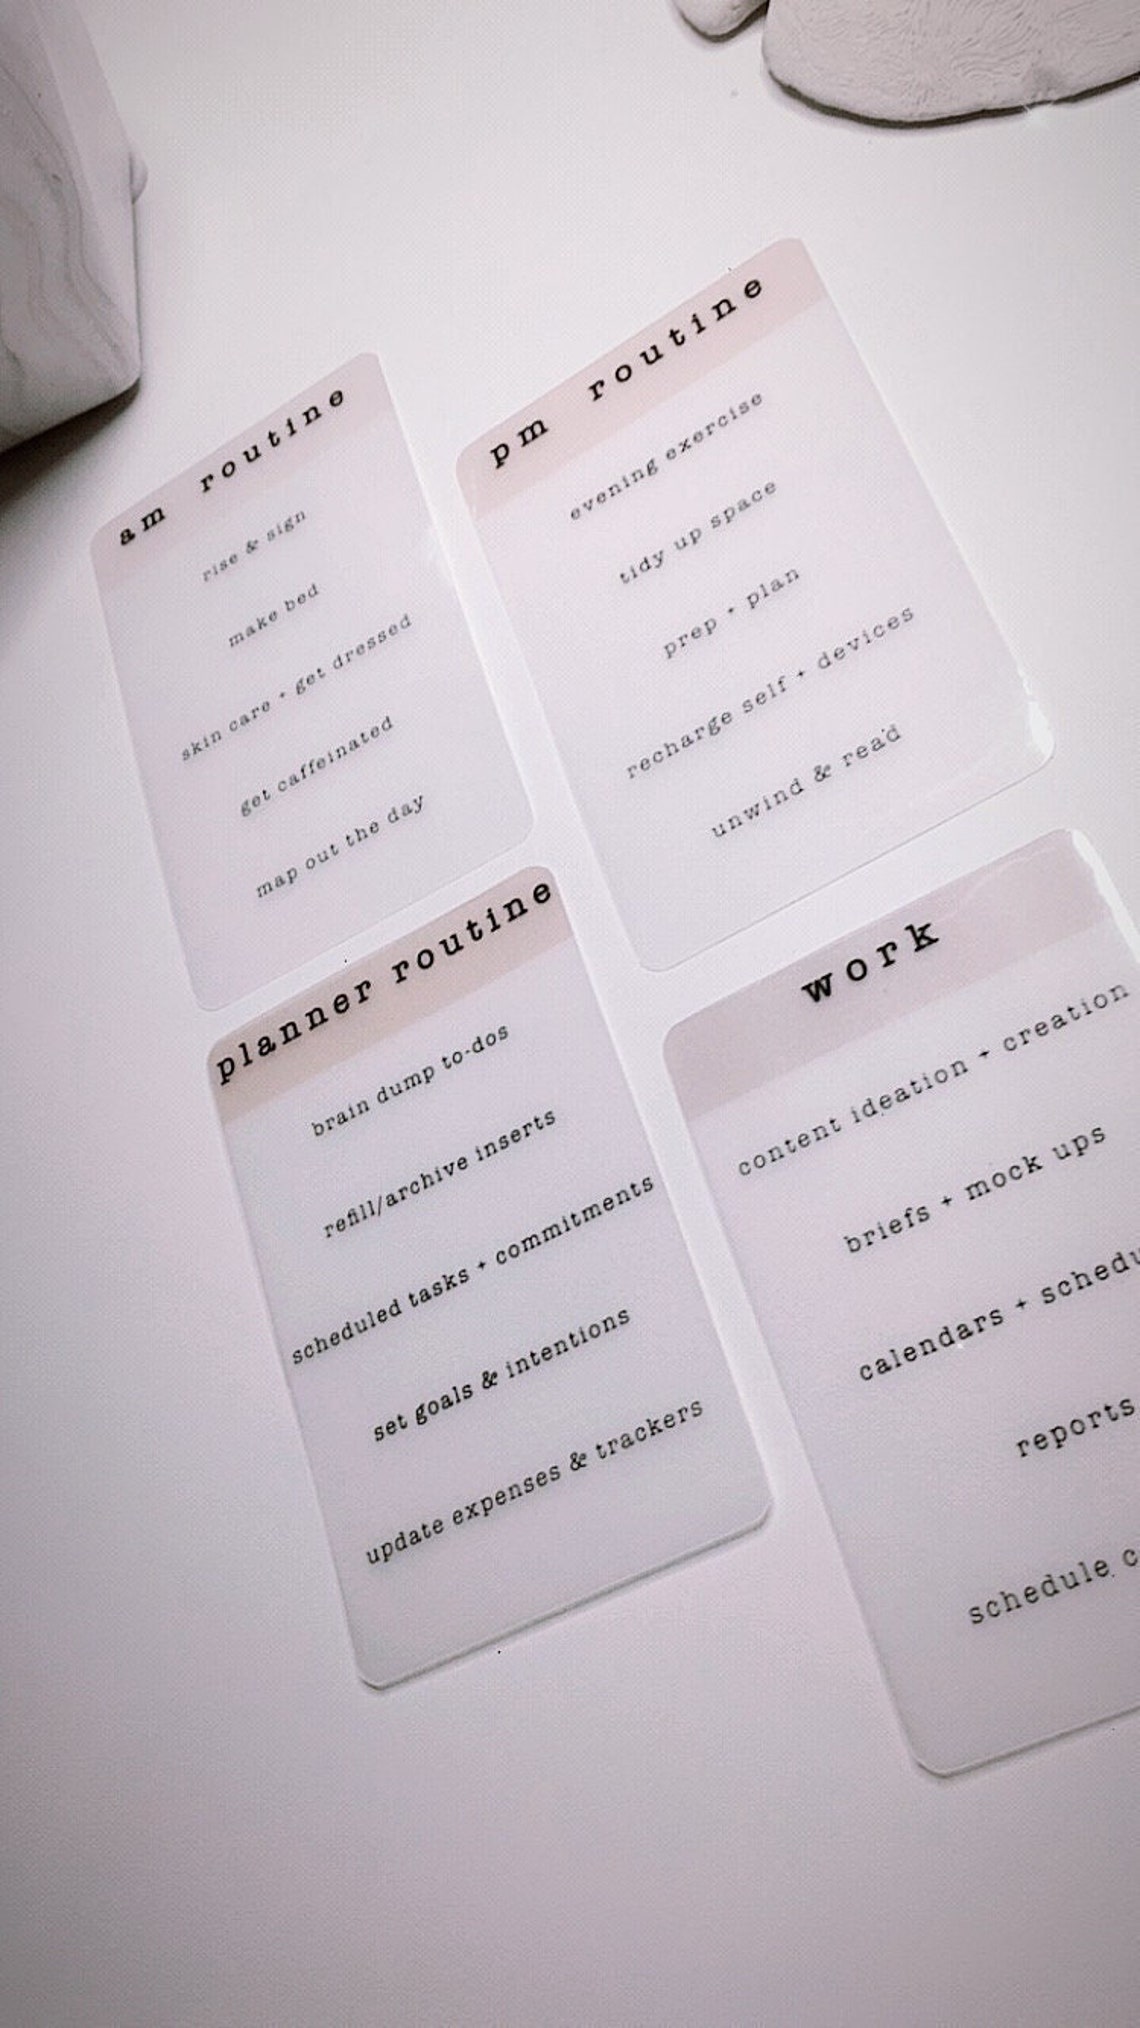 am routine
rise & sign
make bed
skin care + get dressed
get caffeinated
map out the day
pm routine
evening exercise
tidy up space
prep + plan
recharge self + devices
unwind & read
planner routine
brain dump to-dos
refill/archive inserts
scheduled tasks + commitments
set goals & intentions
update expenses & trackers
work
content ideation + creation
briefs + mock ups
calendars +
reports
schedule